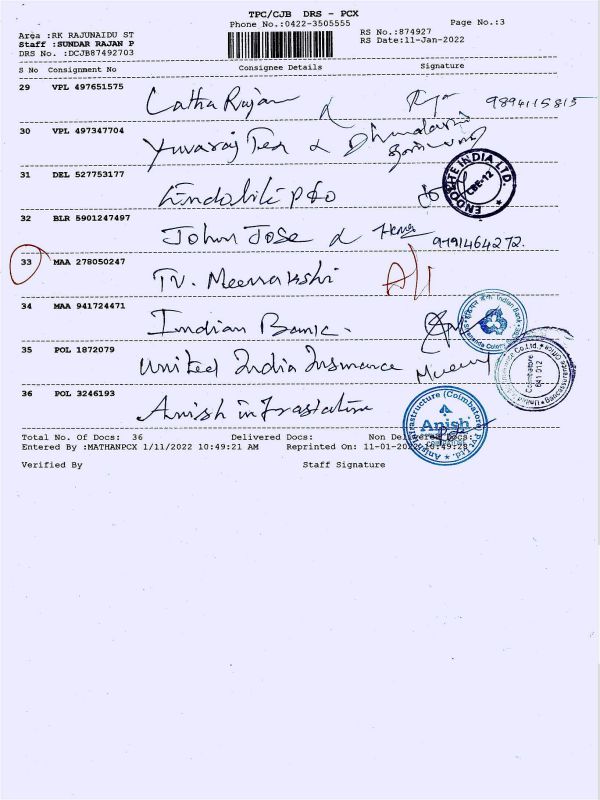 TPC/CJB DRS - PCX
Phone No.:0422-3505555
Page No.:3
Area :RK RAJUNAIDU ST
RS No.:874927
Staff :SUNDAR RAJAN P
RS Date:11-Jan-2022
DRS No. :DCJB87492703
S No Consignment No Consignee Details Signature
29 VPL 497651575 Latha Rajan 9894115815
30 VPL 497347704 Yuvaraj
31 DEL 527753177 Endolite P&O
ENDOLITE INDIA LTD. CBE-12
32 BLR 5901247497 John Jose 9791464272.
33 MAA 278050247 TV. Meenakshi
34 MAA 941724471 Indian Bank.
Indian Bank
35 POL 1872079 United India Insurance
Coimbatore 641 012
36 POL 3246193 Anish infrastructure
Anish Infrastructure (Coimbatore) Pvt. Ltd.
Anish
Total No. Of Docs: 36 Delivered Docs: Non Delivered Docs:
Entered By :MATHANPCX 1/11/2022 10:49:21 AM Reprinted On: 11-01-2022 10:49:28
Verified By Staff Signature